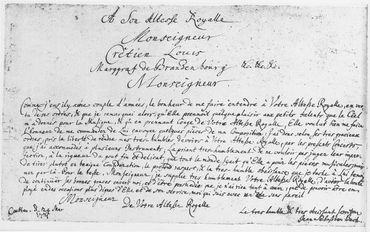 A Son Altesse Royalle
Monseigneur
Crétien Louis
Marggraf de Brandenbourg &c. &c. &c.
Monseigneur
Comme j'eus il y a une couple d'années, le bonheur de me faire entendre à Votre Altesse Royalle, en ver-
tu de ses ordres, & que je remarquai alors, qu'Elle prennoit quelque plaisir aux petits talents que le Ciel
m'a donnés pour la Musique, & qu'en prennant Conge de Votre Altesse Royalle, Elle voulut bien me faire
l'honneur de me commander de Lui envoyer quelques pieces de ma Composition: j'ai donc selon ses tres gracieux
ordres, pris la liberté de rendre mes tres-humbles devoirs à Votre Altesse Royalle, par les presents Concerts,
que j'ai accommodés à plusieurs Instruments; La priant tres-humblement de ne vouloir pas juger leur imper-
fection, à la rigueur du gout fin et delicat, que tout le monde sçait qu'Elle a pour les pieces musicales;
de tirer plutot en benigne Consideration, le profond respect, & la tres-humble obeissance que
Pour le reste, Monseigneur, je supplie tres humblement Votre Altesse Royalle, d'avoir la bonté
de continuer ses bonnes graces envers moi, et d'être persuadée que je n'ai rien tant à cœur, que de pouvoir être em-
ployé en des occasions plus dignes d'Elle et de son service, moi qui suis avec un zele sans pareil
Monseigneur
De Votre Altesse Royalle
Coethen. d. 24 Mar
1721
Le tres humble & tres obeissant serviteur
Jean Sebastien Bach.